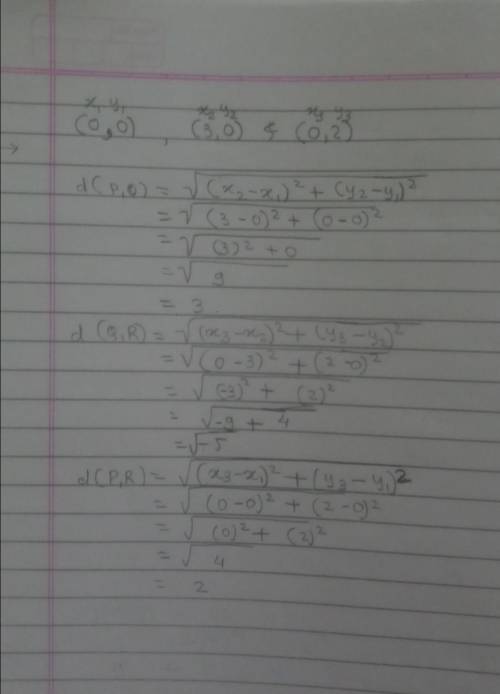 x₁ y₁ x₂ y₂ x₃ y₃
→ (0,0) , (3,0) & (0,2)
d(P,Q) = √(x₂-x₁)² + (y₂-y₁)²
= √(3-0)² + (0-0)²
= √(3)² + 0
= √9
= 3
d(Q,R) = √(x₃-x₂)² + (y₃-y₂)²
= √(0-3)² + (2-0)²
= √(-3)² + (2)²
= √-9 + 4
= √-5
d(P,R) = √(x₃-x₁)² + (y₃-y₁)²
= √(0-0)² + (2-0)²
= √(0)² + (2)²
= √4
= 2